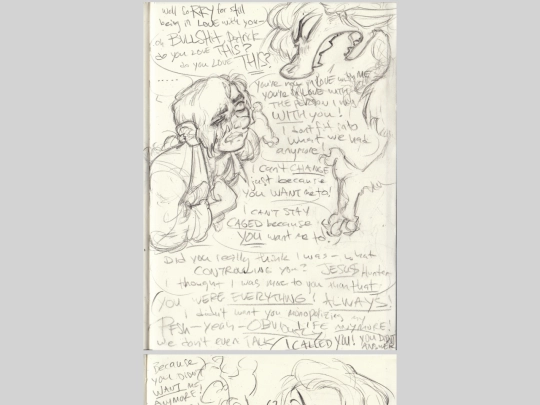 Well SORRY for still
being in LOVE with you—
oh BULLSHIT, Patrick
do you LOVE THIS?
do you LOVE THIS?
you're not in LOVE with ME
YOU'RE in LOVE with
THE PERSON I was
WITH you!
I don't fit into
what we had
anymore!
I can't CHANGE
just because
YOU WANT me to!
I CAN'T STAY
CAGED because
YOU want me to!
Did you really think I was – what
CONTROLLING you? JESUS Hunter
I thought I was more to you than that
YOU WERE EVERYTHING! ALWAYS!
I didn't want you monopolizing my
LIFE anymore!
We don't even TALK / I CALLED YOU! YOU DIDN'T
ANSWER
Because
YOU DIDN'T
WANT ME
ANYMORE!